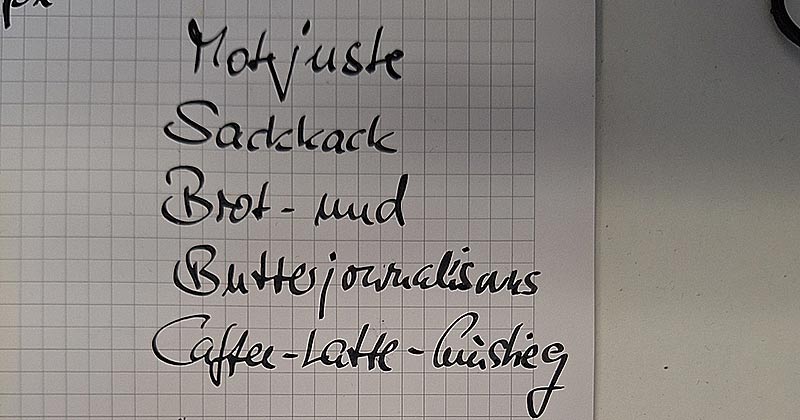 Motjuste
Sackkack
Brot- und
Butterjournalismus
Caffee-Latte-Einstieg